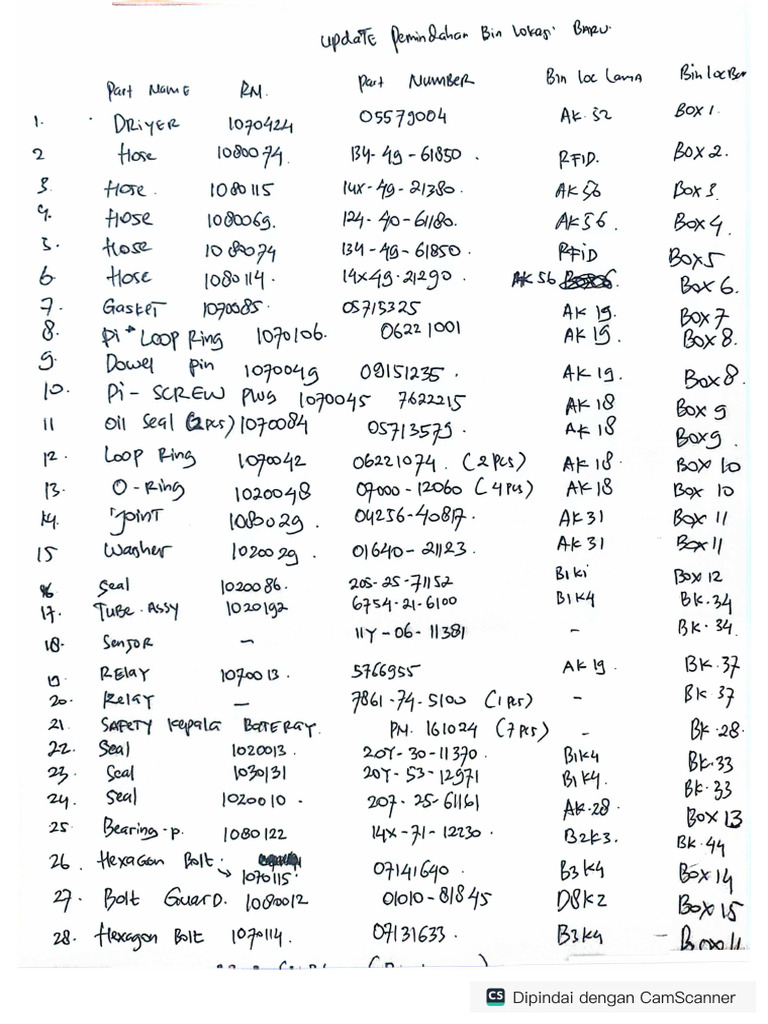 Update Pemindahan Bin Lokasi BARU.
Part Name RM. Part Number Bin Loc Lama Bin Loc
1. DRIYER 1070424 05579004 AK.52 BOX 1.
2 Hose 1080074. 134-49-61850. RFID. BOX 2.
3. Hose. 1080115 14X-49-21380. AK 56 BOX 3.
4. Hose 1080069. 124-40-61180. AK56. BOX 4.
5. Hose 1080074 134-49-61850. RFiD BOX 5
6 Hose 1080114. 14X49.21290. AK 56 BOX 6.
7. Gasket 1070085. 05715325 AK 19. BOX 7
8. Pi - LOOP Ring 1070106. 06221001 AK 19. BOX 8.
9. Dowel pin 1070049 09151235. AK 19. BOX 8.
10. Pi - SCREW Plug 1070045 7622215 AK 18 BOX 9
11 Oil Seal (2pcs) 1070084 05713579. AK 18 BOX 9.
12. Loop Ring 1070042 06221074. (2 Pcs) AK 18. BOX 10
13. O-Ring 1020048 07000-12060 (4 Pcs) AK 18 BOX 10
14. Joint 1080029. 04256-40817. AK 31 BOX 11
15 Washer 1020029. 01640-21123. AK 31 BOX 11
16 Seal 1020086. 205-25-71152 B1Ki BOX 12
17. TUBE. ASSY 1020192 6754-21-6100 B1K4 BK.34
18. Sensor - 11Y-06-11381 - BK.34.
19. RELAY 1070013. 5766955 AK 19. BK.37
20. Relay - 7861-74-5100 (1 Pcs) - BK 37
21. SAFETY Kepala BATERAY. PN. 161024 (7 Pcs) - BK.28.
22. Seal 1020013. 20Y-30-11370. B1K4 BK.33
23. Seal 1030131 20Y-53-12971 B1K4. BK.33
24. Seal 1020010. 207-25-61161 AK.28. BOX 13
25 Bearing-p. 1080122 14X-71-12230. B2K3. BK.44
26. Hexagon Bolt. 1070115. 07141640. B3K4 BOX 14
27. Bolt Guard. 1080012 01010-81845 D8K2 BOX 15
28. Hexagon Bolt 1070114. 07131633. B3K4
CS Dipindai dengan CamScanner